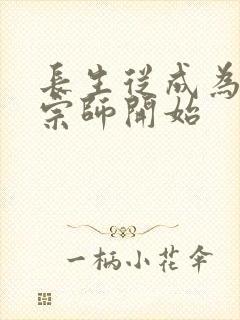 長生從成為
宗師開始
一柄小花傘